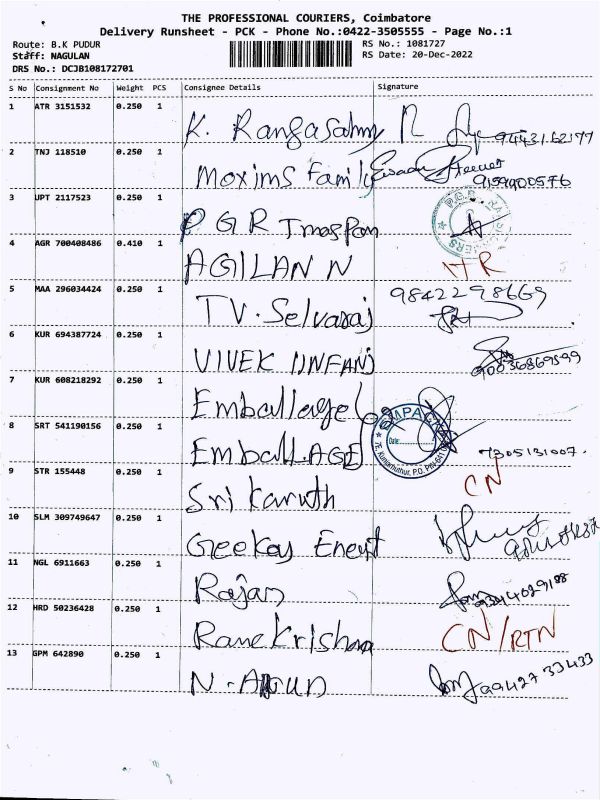 THE PROFESSIONAL COURIERS, Coimbatore
Delivery Runsheet - PCK - Phone No.:0422-3505555 - Page No.:1
Route: B.K PUDUR
RS No.: 1081727
Staff: NAGULAN
RS Date: 20-Dec-2022
DRS No.: DCJB108172701
S No Consignment No Weight PCS Consignee Details Signature
1 ATR 3151532 0.250 1 K. Rangasahmy R 9443162177
2 TNJ 118510 0.250 1 Moxims Family 9159900576
3 UPT 2117523 0.250 1 P G R
4 AGR 700408486 0.410 1 AGILAN N HR
5 MAA 296034424 0.250 1 TV. Selvaraj 9842298669
6 KUR 694387724 0.250 1 VIVEK
7 KUR 608218292 0.250 1 Emballage
8 SRT 541190156 0.250 1 EMBALLAGE 7305131007.
9 STR 155448 0.250 1 Sri CN
10 SLM 309749647 0.250 1 Geekay
11 NGL 6911663 0.250 1 Rajan
12 HRD 50236428 0.250 1 Rame Krishna CN/RTN
13 GPM 642890 0.250 1 N. ARUN 9942733433